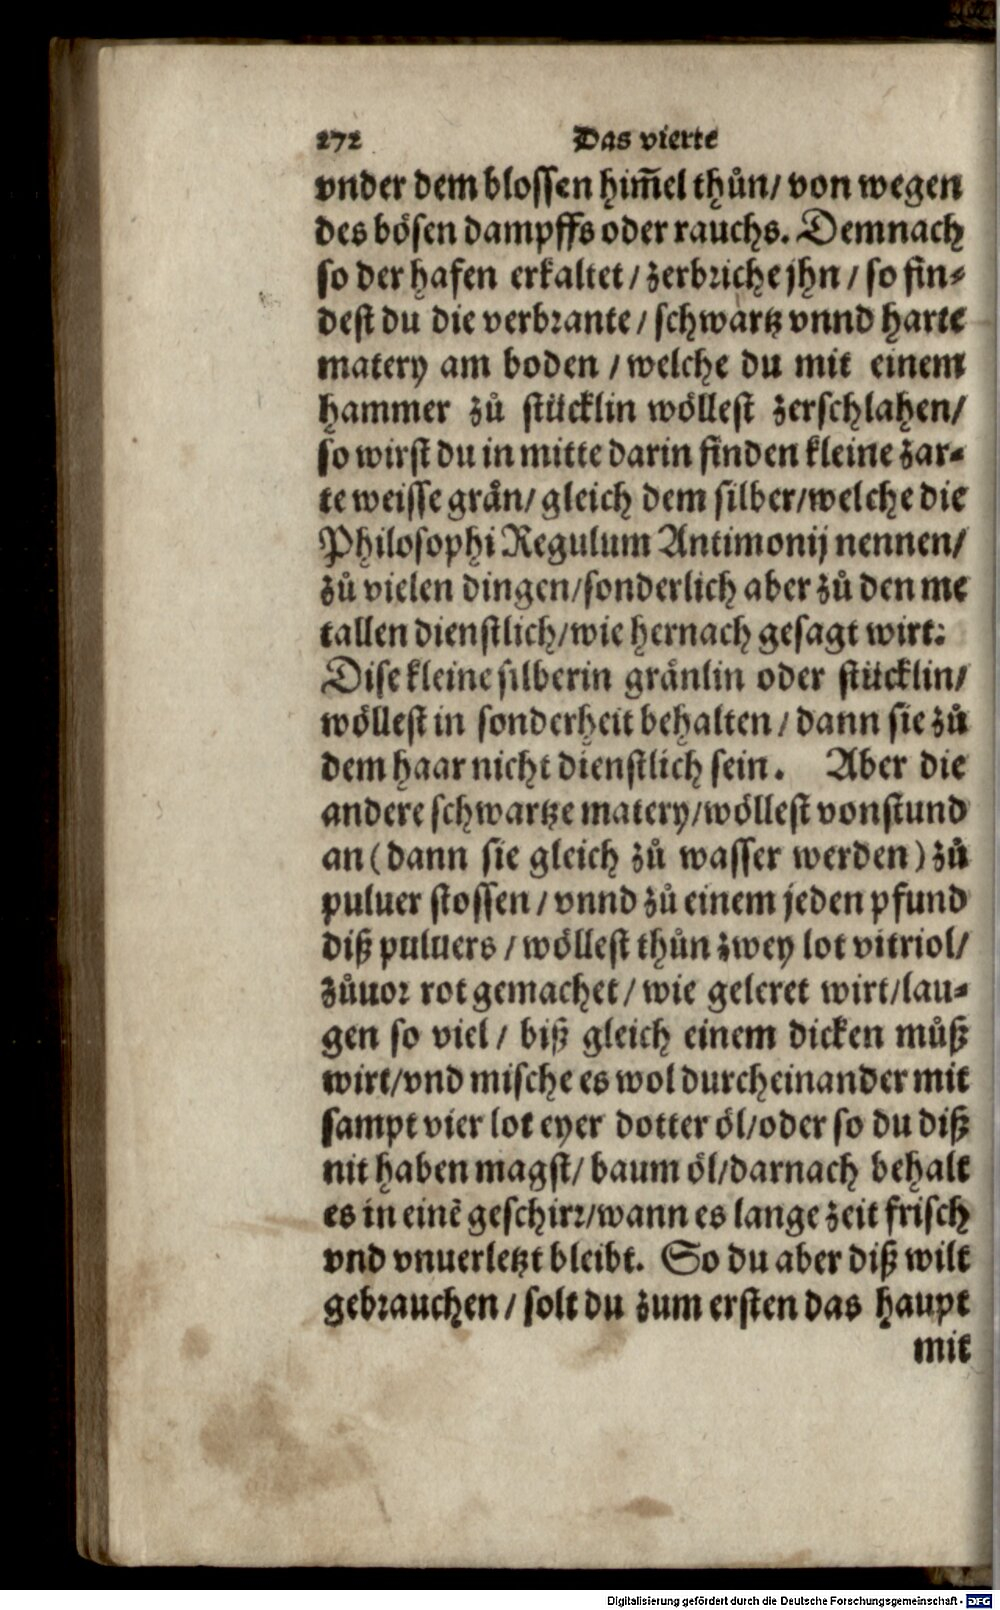 272 Das vierte
vnder dem blossen him̄el thůn/ von wegen
des bösen dampffs oder rauchs. Demnach
so der hafen erkaltet / zerbriche jhn / so fin⸗
dest du die verbrante / schwartz vnnd harte
matery am boden / welche du mit einem
hammer zů stücklin wöllest zerschlahen/
so wirst du in mitte darin finden kleine zar⸗
te weisse grån/ gleich dem silber/welche die
Philosophi Regulum Antimonij nennen/
zů vielen dingen/sonderlich aber zů den me
tallen dienstlich/wie hernach gesagt wirt:
Dise kleine silberin gränlin oder stücklin/
wöllest in sonderheit behalten / dann sie zů
dem haar nicht dienstlich sein. Aber die
andere schwartze matery/wöllest vonstund
an (dann sie gleich zů wasser werden) zů
puluer stossen / vnnd zů einem jeden pfund
diß puluers / wöllest thůn zwey lot vitriol/
zůuor rot gemachet / wie geleret wirt/lau⸗
gen so viel / biß gleich einem dicken můß
wirt/vnd mische es wol durcheinander mit
sampt vier lot eyer dotter öl/oder so du diß
nit haben magst/ baum öl/darnach behalt
es in einē geschirr/wann es lange zeit frisch
vnd vnuerletzt bleibt. So du aber diß wilt
gebrauchen / solt du zum ersten das haupt
mit
Digitalisierung gefördert durch die Deutsche Forschungsgemeinschaft - DFG